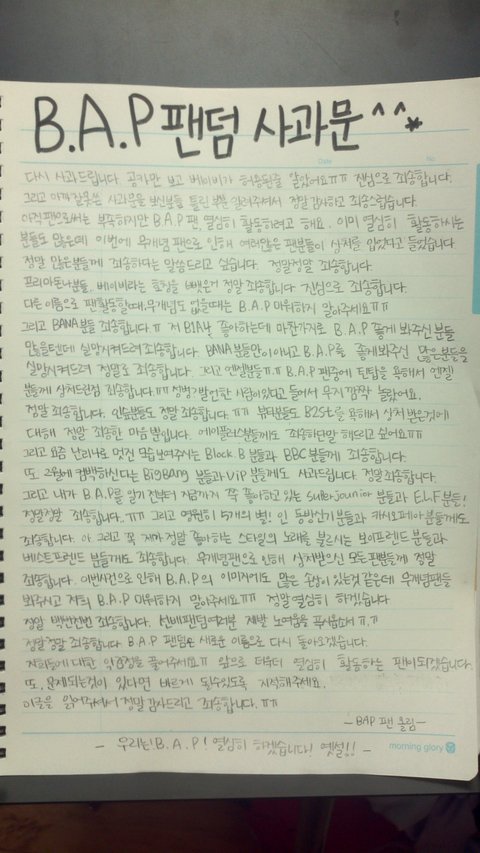 B.A.P 팬덤 사과문 ^^*
Date No
다시 사과드립니다. 공카만 보고 베이비가 허용된줄 알았어요ㅠㅠ 진심으로 죄송합니다.
그리고 아까 잘못쓴 사과문을 보신분들 틀린 부분 알려주셔서 정말 감사하고 죄송스럽습니다.
아직 팬로써는 부족하지만 B.A.P 팬, 열심히 활동하려고 해요. 이미 열심히 활동하시는
분들도 많은데 이번에 무개념 팬으로 인해 여러많은 팬분들이 상처를 입었다고 들었습니다
정말 많은분들께 죄송하다는 말씀드리고 싶습니다. 정말정말 죄송합니다.
프리마돈나분들, 베이비라는 호칭을 빼앗은거 정말 죄송합니다 진심으로 죄송합니다.
다른 이름으로 팬활동할때, 무개념도 없을때는 B.A.P 미워하지 말아주세요ㅠㅠ
그리고 BANA분들 죄송합니다ㅠ 저 B1A4 좋아하는데 마찬가지로 B.A.P 좋게 봐주신 분들
많을텐데 실망시켜드려 죄송합니다. BANA분들만이 아니고 B.A.P를 좋게봐주신 많은 분들을
실망시켜드려 정말로 죄송합니다. 그리고 엔젤분들ㅠㅠ B.A.P 팬중에 틴탑을 욕해서 엔젤
분들께 상처드린점 죄송합니다.ㅠㅠ 성별?발언한 사람이있다고 들어서 무지 깜짝 놀랐어요.
정말 죄송합니다. 인슾분들도 정말 죄송합니다.ㅠㅠ 뷰티분들도 B2St를 욕해서 상처 받은것에
대해 정말 죄송한 마음뿐입니다. 에이플러스분들께도 죄송하단말 해드리고 싶어요ㅠㅠ
그리고 요즘 난리나로 멋진 모습보여주시는 Block.B 분들과 BBC분들께 죄송합니다.
또. 2월에 컴백하신다는 BigBang 분들과 VIP 분들께도 사과드립니다. 정말죄송합니다.
그리고 내가 B.A.P를 알기 전부터 지금까지 쭉 좋아하고 있는 Super Junior 분들과 E.L.F 분들!
정말정말 죄송합니다..ㅠㅠ 그리고 영원히 5개의 별! 인 동방신기분들과 카시오페아분들께도
죄송합니다. 아 그리고 꼭 제가 정말 좋아하는 스타일의 노래를 불르시는 보이프렌드 분들과
베스트프렌드 분들께도 죄송합니다. 무개념팬으로 인해 상처받으신 모든 팬분들께 정말
죄송합니다. 이번사건으로 인해 B.A.P의 이미지에도 많은 손상이 있는것 같은데 무개념팬들
봐주시고 저희 B.A.P 미워하지 말아주세요ㅠㅠ 정말 열심히 하겠습니다
정말 백번천번 죄송합니다. 선배팬덤여러분 제발 노여움을 푸시옵소서 ㅠ.ㅠ
정말정말 죄송합니다 B.A.P 팬덤은 새로운 이름으로 다시 돌아오겠습니다.
저희들에 대한 악감정을 풀어주세요ㅠ 앞으로 더욱더 열심히 활동하는 팬이되겠습니다.
또, 문제되는것이 있다면 바르게 될수있도록 지적해주세요.
이글을 읽어주셔서 정말 감사드리고 죄송합니다.ㅠㅠ
-BAP 팬 올림-
- 우리는! B.A.P! 열심히 하겠습니다! 옛설!! -
morning glory